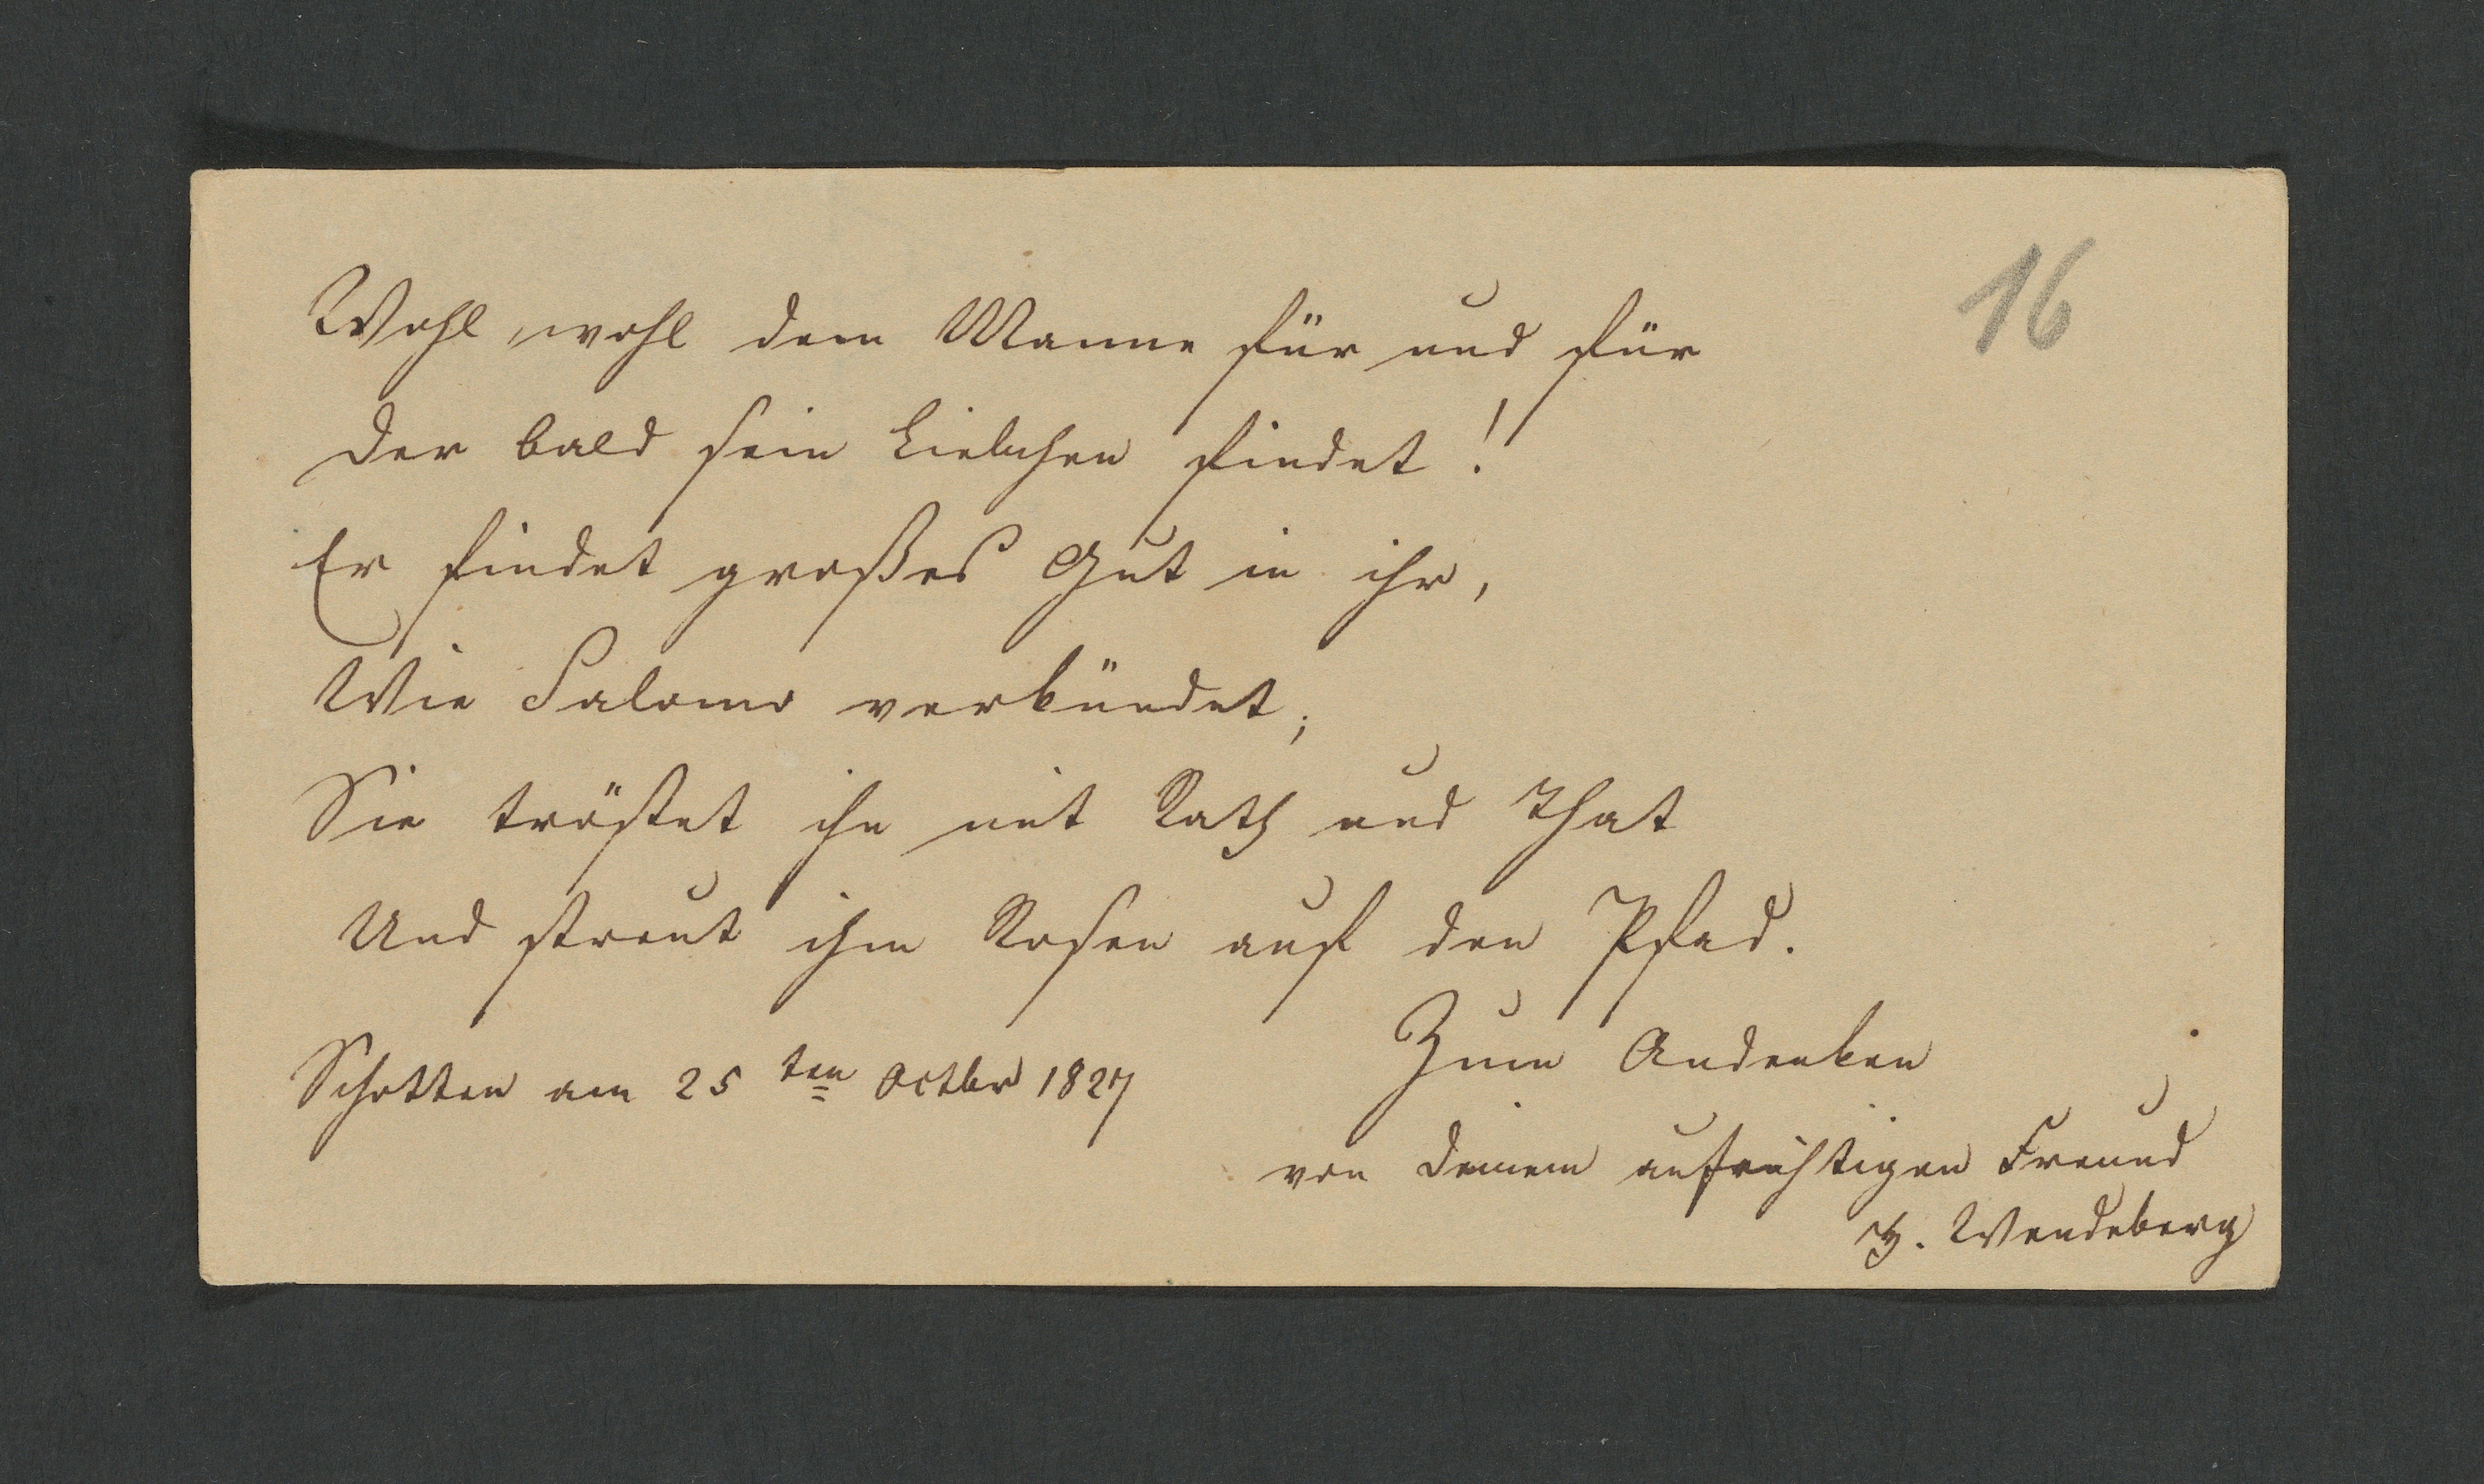 16
Wohl, wohl dem Manne für und für
Der bald sein Liebchen findet!
Er findet großes Gut in ihr,
Wie Salomo verkündet;
Sie tröstet ihn mit Rath und That
Und streut ihm Rosen auf den Pfad.
Schotten am 25 ten Octbr 1827
Zum Andenken
von Deinem aufrichtigen Freund
Wendeberg